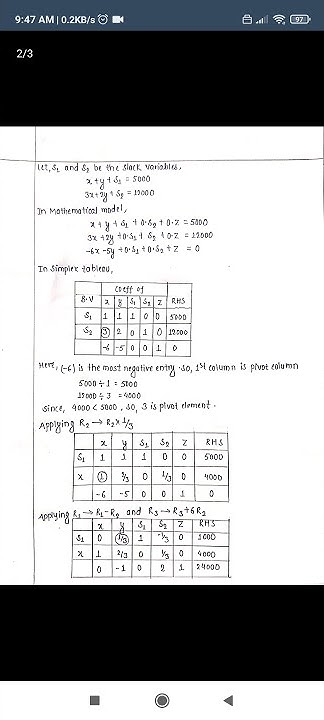 9:47 AM | 0.2KB/s
97
2/3
Let, S1 and S2 be the slack variables,
x+y+S1 = 5000
3x+2y+S2 = 12000
In Mathematical model,
x+y+S1+0.S2+0.Z = 5000
3x+2y+0.S1+S2+0.Z = 12000
-6x-5y+0.S1+0.S2+Z = 0
In Simplex tableau,
B.V Coeff of RHS
x y S1 S2 Z
S1 1 1 1 0 0 5000
S2 3 2 0 1 0 12000
-6 -5 0 0 1 0
Here, (-6) is the most negative entry. So, 1st column is pivot column
5000÷1 = 5000
12000÷3 = 4000
Since, 4000<5000. So, 3 is pivot element.
Applying R2→R2×1/3
x y S1 S2 Z RHS
S1 1 1 1 0 0 5000
x 1 2/3 0 1/3 0 4000
-6 -5 0 0 1 0
Applying R1→R1-R2 and R3→R3+6R2
x y S1 S2 Z RHS
S1 0 1/3 1 -1/3 0 1000
x 1 2/3 0 1/3 0 4000
0 -1 0 2 1 24000